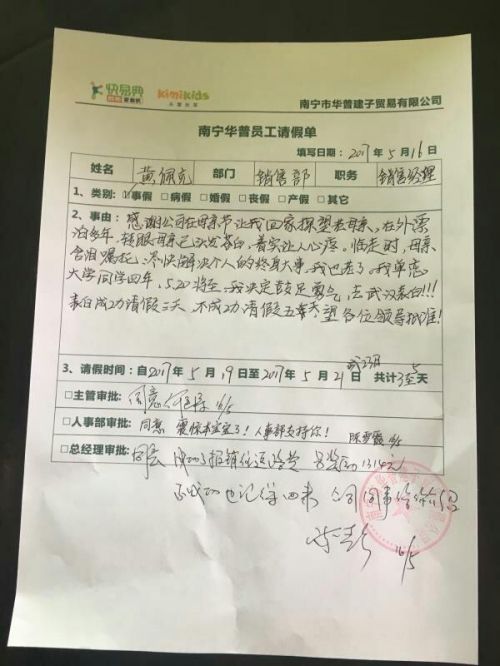 快易典
kimikids
南宁市华普建子贸易有限公司
南宁华普员工请假单
填写日期：2017年5月16日
姓名 黄佩克 部门 销售部 职务 销售经理
1、类别：☑事假 □病假 □婚假 □丧假 □产假 □其它
2、事由：感谢公司在母亲节让我回家探望老母亲，在外漂
泊多年，转眼母亲已头发苍白，着实让人心疼。临走时，母亲
含泪嘱托，尽快解决个人的终身大事，我也老了。我单恋
大学同学四年，5.20将至，我决定鼓足勇气，去武汉表白!!!
表白成功请假三天，不成功请假五年，希望各位领导批准！
3、请假时间：自2017年5月19日至2017年5月21日 或23日 共计3至5天
□主管审批：同意 16/5
□人事部审批：同意 震惊本宝宝了！人事部支持你！ 16/5
□总经理审批：同意 成功了报销往返路费 另奖励1314元
不成功也记得回来 公司同事给你介绍
16/5